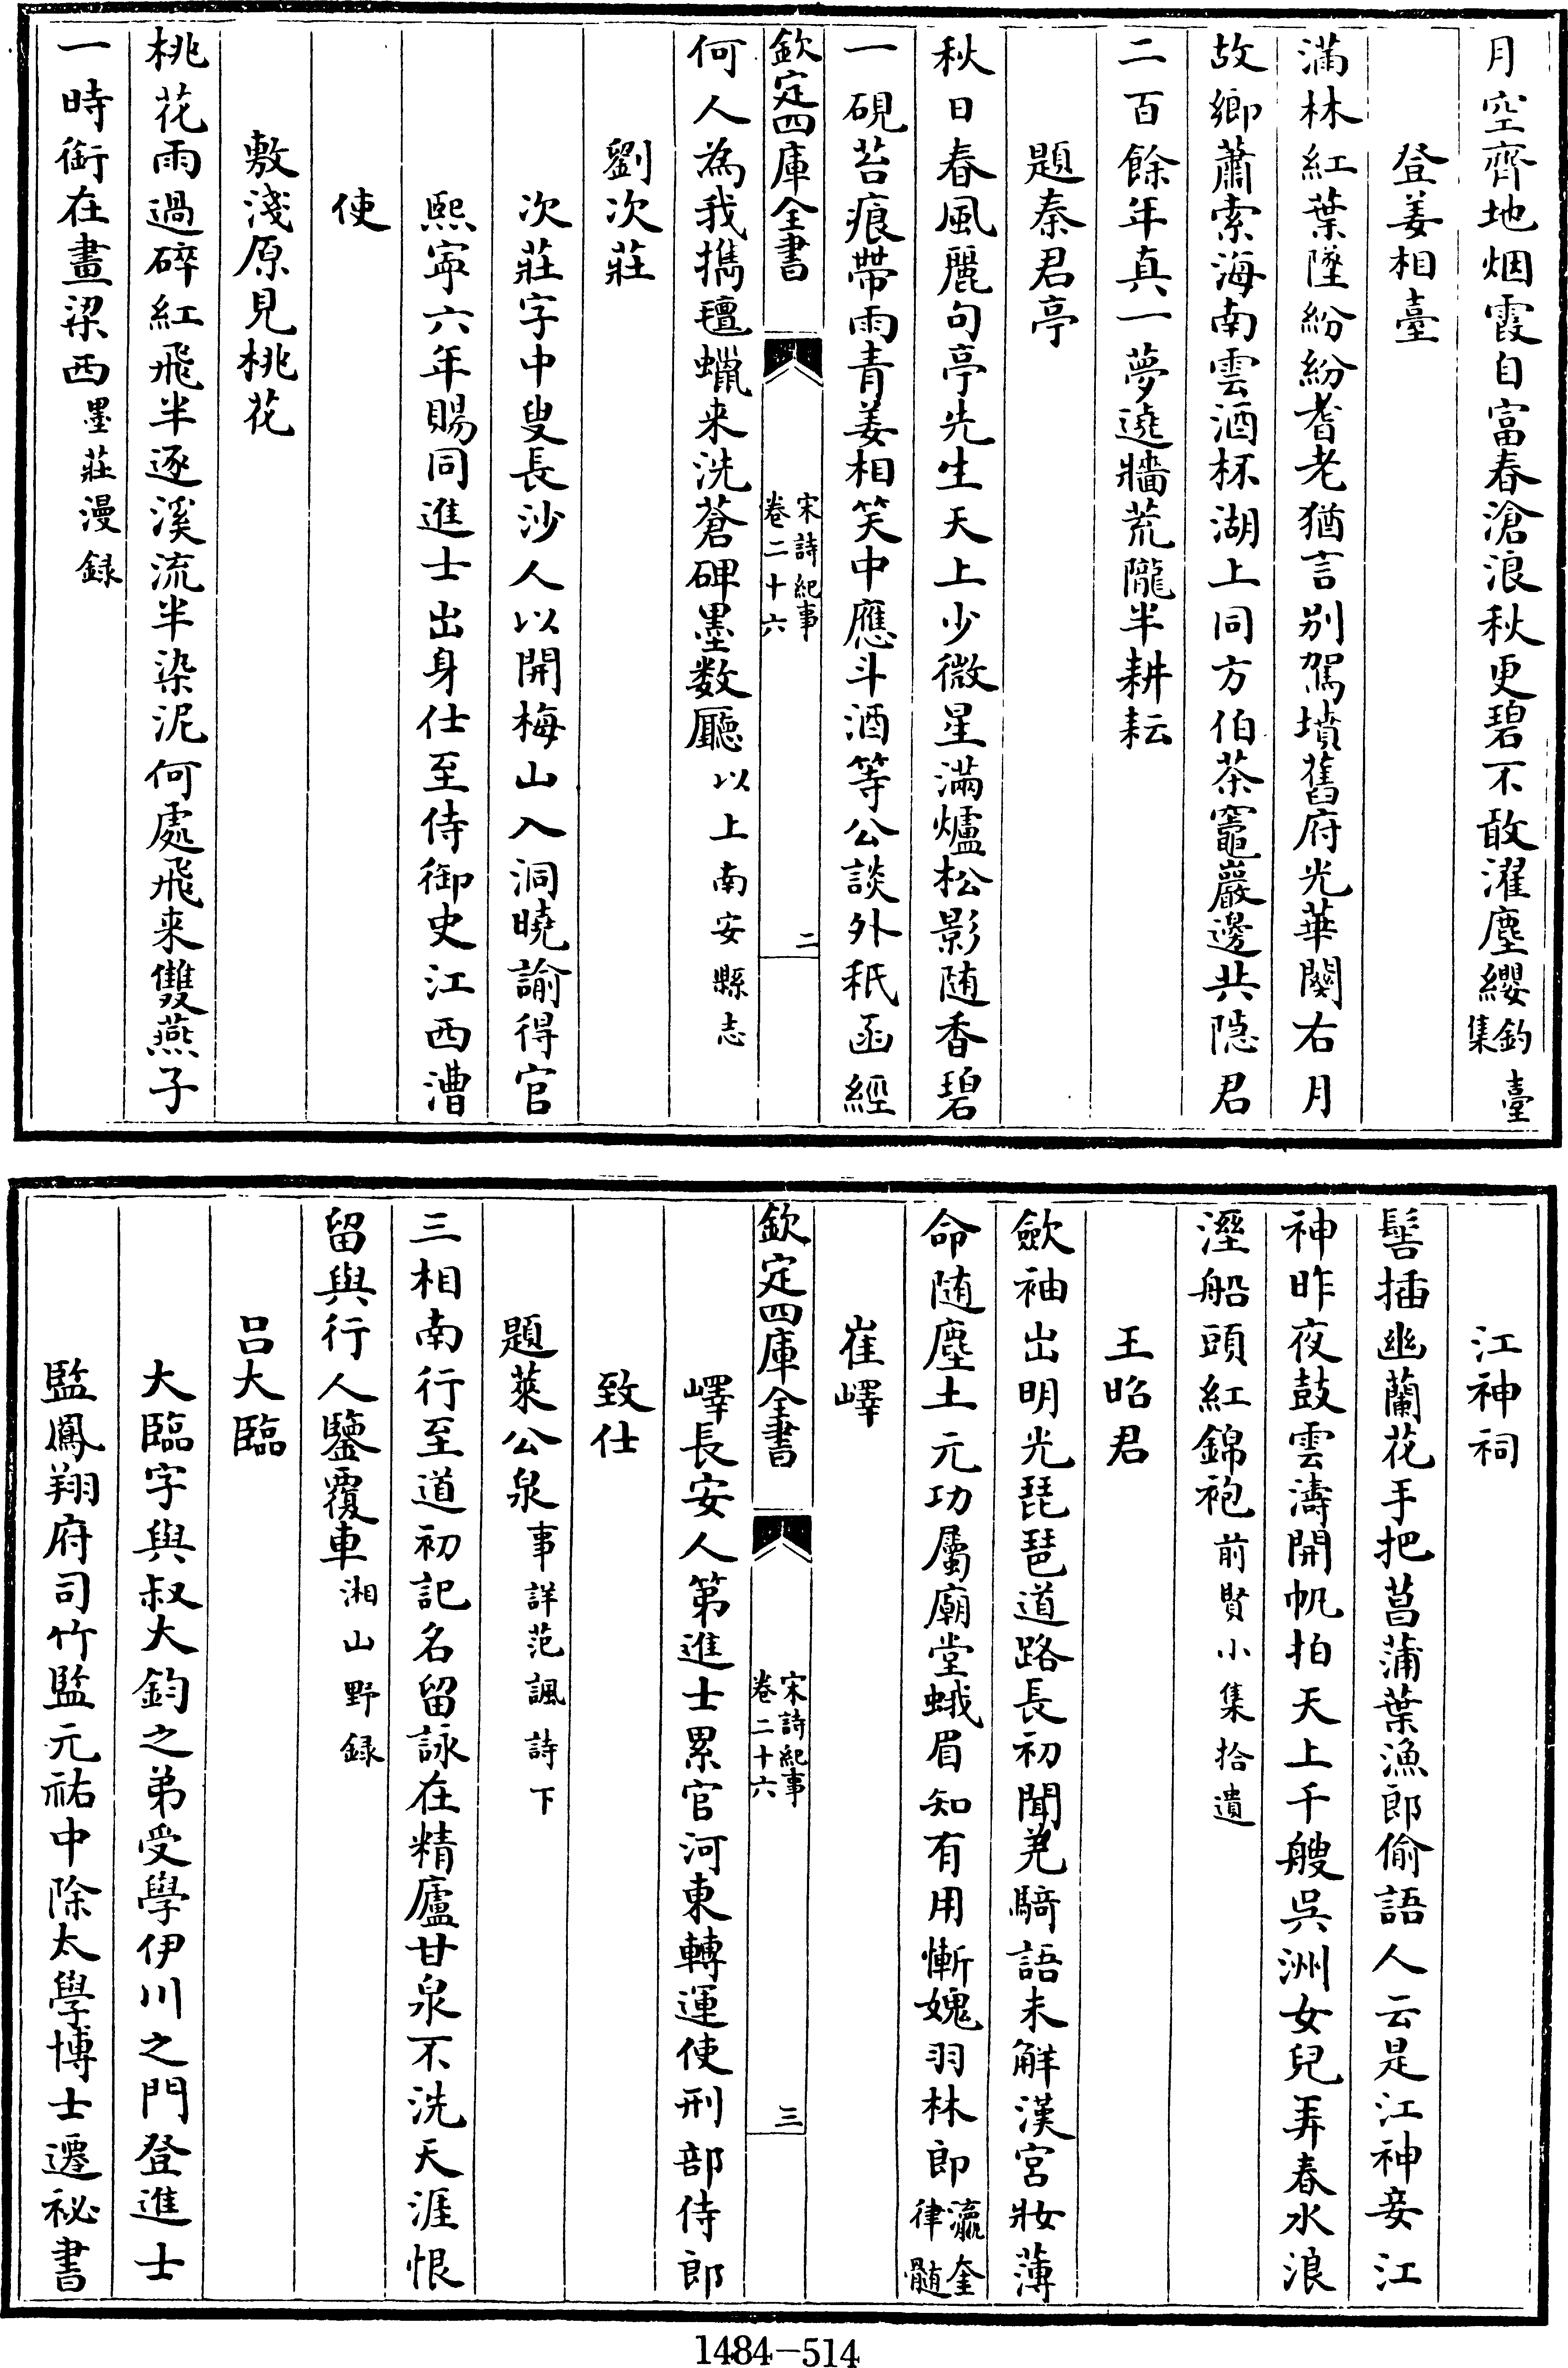 月空齊地烟霞自富春滄浪秋更碧不敢濯塵纓釣臺集
登姜相臺
滿林紅葉墜紛紛耆老猶言别駕墳舊府光華闋右月
故鄉蕭索海南雲酒杯湖上同方伯茶竈巖邊共隠君
二百餘年真一夢遶牆荒隴半耕耘
題秦君亭
秋日春風麗句亭先生天上少微星滿爐松影随香碧
一硯苔痕帶雨青姜相笑中應斗酒等公談外秖函經
欽定四庫全書
宋詩紀事
卷二十六
二
何人為我攜氊蠟来洗蒼碑墨数廳以上南安縣志
劉次莊
次莊字中叟長沙人以開梅山入洞曉諭得官
熙寜六年賜同進士出身仕至侍御史江西漕
使
敷淺原見桃花
桃花雨過碎紅飛半逐溪流半染泥何處飛来雙燕子
一時銜在畫梁西墨莊漫録
江神祠
髻插幽蘭花手把菖蒲葉漁郎偷語人云是江神妾江
神昨夜鼓雲濤開帆拍天上千艘吳洲女兒弄春水浪
溼船頭紅錦袍前賢小集拾遺
王昭君
歛袖出明光琵琶道路長初聞羌騎語未解漢宮妝薄
命随塵土元功屬廟堂蛾眉知有用慚媿羽林郎瀛奎律髓
崔嶧
欽定四庫全書
宋詩紀事
卷二十六
三
嶧長安人第進士累官河東轉運使刑部侍郎
致仕
題萊公泉事詳范諷詩下
三相南行至道初記名留詠在精廬甘泉不洗天涯恨
留與行人鑒覆車湘山野録
吕大臨
大臨字與叔大鈞之弟受學伊川之門登進士
監鳳翔府司竹監元祐中除太學博士遷祕書
1484-514